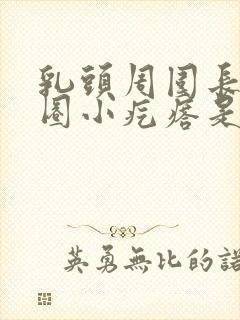 乳頭周圍長
圈小疙瘩是
英勇無比的諾